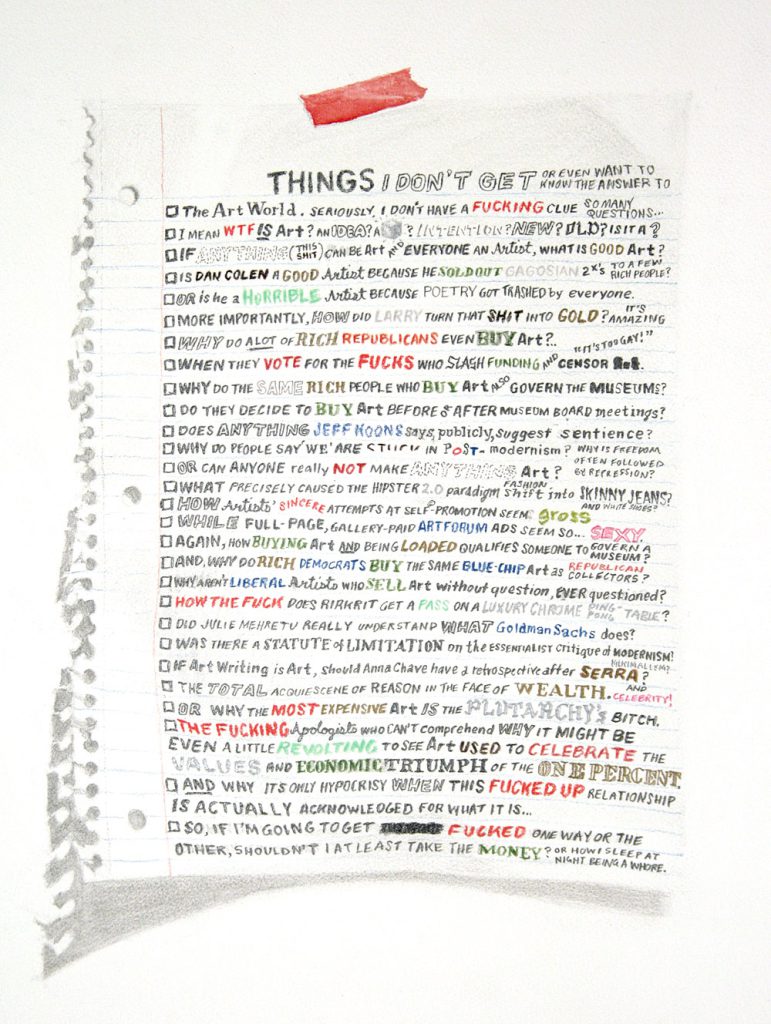 THINGS I DON'T GET OR EVEN WANT TO KNOW THE ANSWER TO
The Art World. SERIOUSLY, I DON'T HAVE A FUCKING CLUE SO MANY QUESTIONS...
I MEAN WTF IS Art? AN IDEA? A ? INTENTION? NEW? OLD? IS IT A?
IF ANYTHING (THIS SHIT) CAN BE Art AND EVERYONE AN Artist, WHAT IS GOOD Art?
IS DAN COLEN A GOOD Artist BECAUSE HE SOLD OUT GAGOSIAN 2X's TO A FEW RICH PEOPLE?
OR is he a HORRIBLE Artist BECAUSE POETRY GOT TRASHED by everyone.
MORE IMPORTANTLY, HOW DID LARRY TURN THAT SHIT INTO GOLD? IT'S AMAZING
WHY DO ALOT OF RICH REPUBLICANS EVEN BUY Art?.. "IT'S TOO GAY!"
WHEN THEY VOTE FOR THE FUCKS WHO SLASH FUNDING AND CENSOR
WHY DO THE SAME RICH PEOPLE WHO BUY Art ALSO GOVERN THE MUSEUMS?
DO THEY DECIDE TO BUY Art BEFORE & AFTER MUSEUM BOARD meetings?
DOES ANYTHING JEFF KOONS says, publicly, suggest sentience?
WHY DO PEOPLE SAY 'WE' ARE STUCK IN POST-modernism? WHY IS FREEDOM OFTEN FOLLOWED BY REPRESSION?
OR CAN ANYONE really NOT MAKE ANYTHING Art?
WHAT PRECISELY CAUSED THE HIPSTER 2.0 paradigm FASHION shift into SKINNY JEANS? AND WHITE SHOES?
HOW Artists' SINCERE ATTEMPTS AT SELF-PROMOTION SEEM gross
WHILE FULL-PAGE, GALLERY-PAID ARTFORUM ADS SEEM SO... SEXY.
AGAIN, HOW BUYING Art AND BEING LOADED QUALIFIES SOMEONE TO GOVERN A MUSEUM?
AND, WHY DO RICH DEMOCRATS BUY THE SAME BLUE-CHIP Art as REPUBLICAN COLLECTORS?
WHY AREN'T LIBERAL Artists WHO SELL Art without question, EVER questioned?
HOW THE FUCK DOES RIRKRIT GET A PASS ON A LUXURY CHROME PING-PONG TABLE?
DID JULIE MEHRETU REALLY UNDERSTAND WHAT Goldman Sachs does?
WAS THERE A STATUTE of LIMITATION on the ESSENTIALIST Critique of MODERNISM!
IF Art Writing is Art, should Anna Chave have a retrospective after SERRA? MINIMALISM?
THE TOTAL ACQUIESCENE OF REASON IN THE FACE OF WEALTH. AND CELEBRITY!
OR WHY THE MOST EXPENSIVE Art IS THE PLUTARCHY'S BITCH.
THE FUCKING Apologists who CAN'T comprehend WHY IT MIGHT BE
EVEN A LITTLE REVOLTING TO SEE Art USED TO CELEBRATE THE
VALUES AND ECONOMIC TRIUMPH OF THE ONE PERCENT.
AND WHY IT'S ONLY HYPOCRISY WHEN THIS FUCKED UP RELATIONSHIP
IS ACTUALLY ACKNOWLEDGED FOR WHAT IT IS...
SO, IF I'M GOING TO GET FUCKED ONE WAY OR THE
OTHER, SHOULDN'T I AT LEAST TAKE THE MONEY? OR HOW I SLEEP AT NIGHT BEING A WHORE.